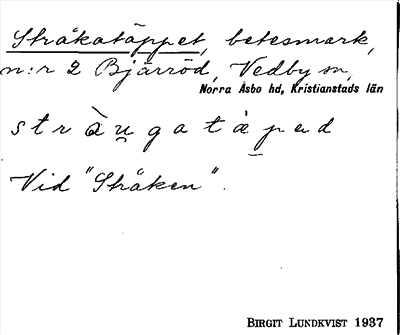 Stråkatäppet, betesmark,
n:r 2 Bjärröd, Vedby sn,
Norra Åsbo hd, Kristianstads län
strå̀u̯gatä̀ped
Vid "Stråken".
BIRGIT LUNDKVIST 1937